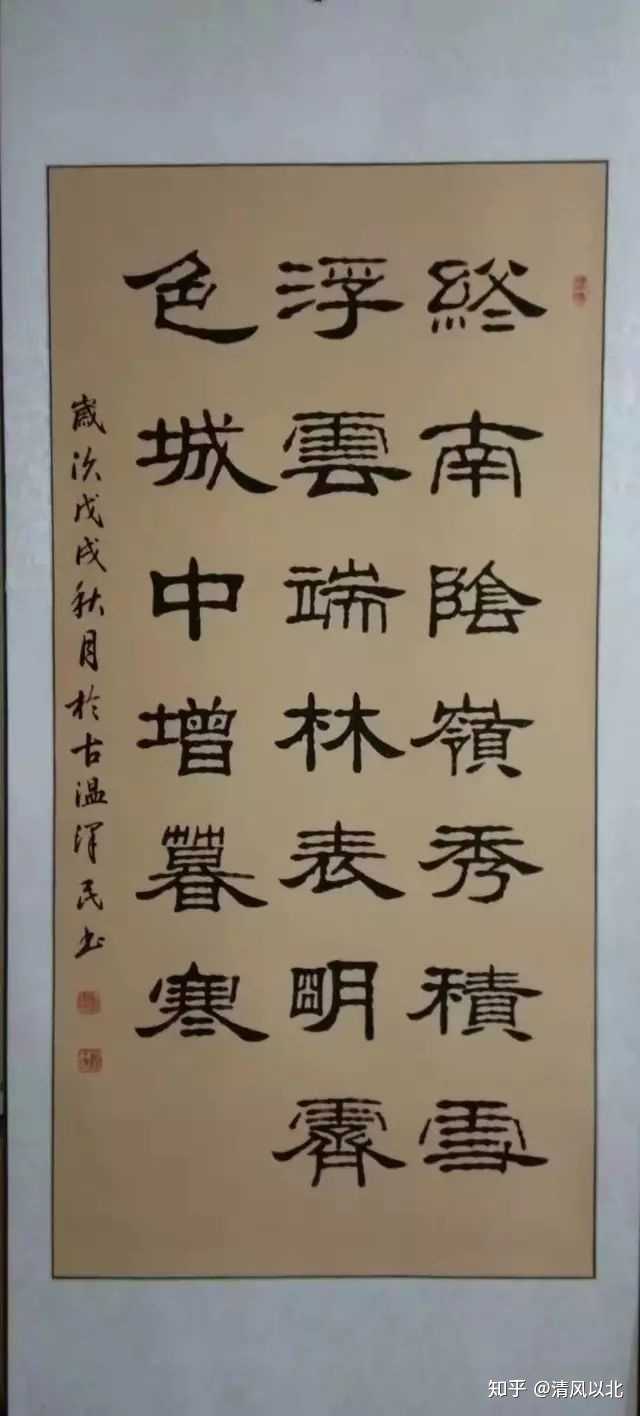 終南陰嶺秀積雪
浮雲端林表明霽
色城中增暮寒
歲次戊戌秋月於古溫澤民書
知乎 @清风以北